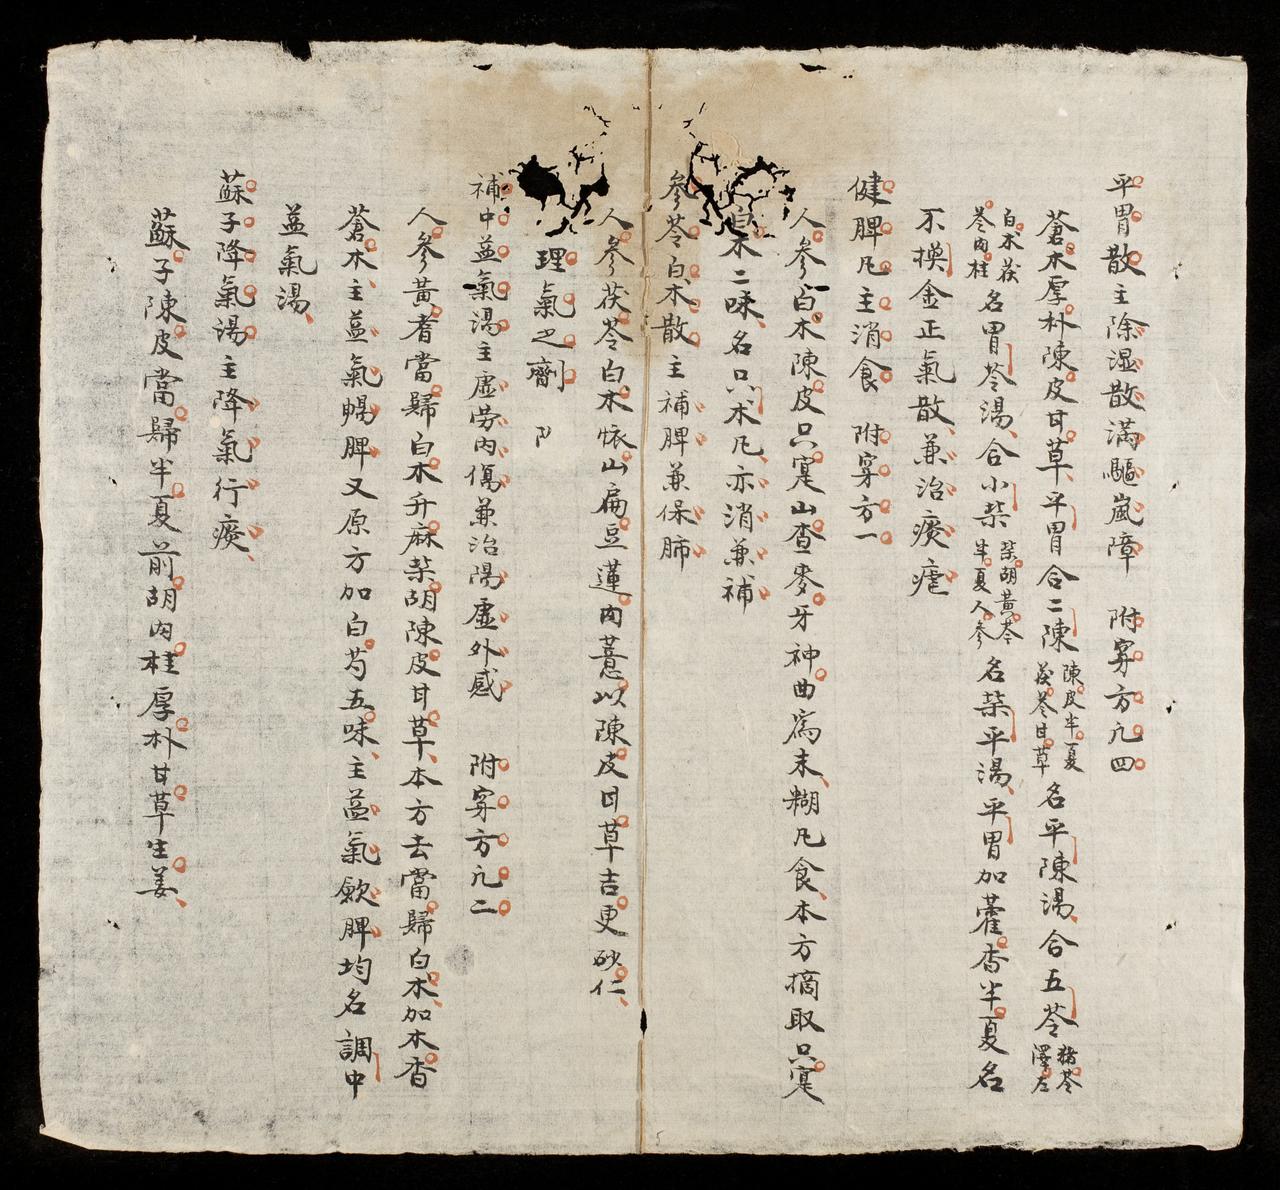 平胃散主除湿散滿驅嵐障 附穿方凢四
蒼木厚朴陳皮甘草平胃合二陳陳皮半夏茯苓甘草名平陳湯合五苓猪苓澤左
白术茯苓肉桂名胃苓湯合小柴柴胡黃苓半夏人參名柴平湯平胃加藿香半夏名
不換金正氣散兼治痰瘧
健脾凡主消食 附穿方一
人參白木陳皮只寔山查麥牙神曲為末糊凡食本方摘取只寔
白木二味名只术凡亦消兼補
參苓白术散主補脾兼保肺
人參茯苓白木懷山扁豆蓮肉薏以陳皮甘草吉更砂仁
理氣之劑 卩
補中益氣湯主虛劳內傷兼治陽虛外感 附穿方凢二
人參黃耆當歸白木升麻柴胡陳皮甘草本方去當歸白木加木香
蒼木主益氣暢脾又原方加白芍五味主益氣歛脾均名調中
益氣湯
蘇子降氣湯主降氣行痰
蘇子陳皮當歸半夏前胡肉桂厚朴甘草生姜